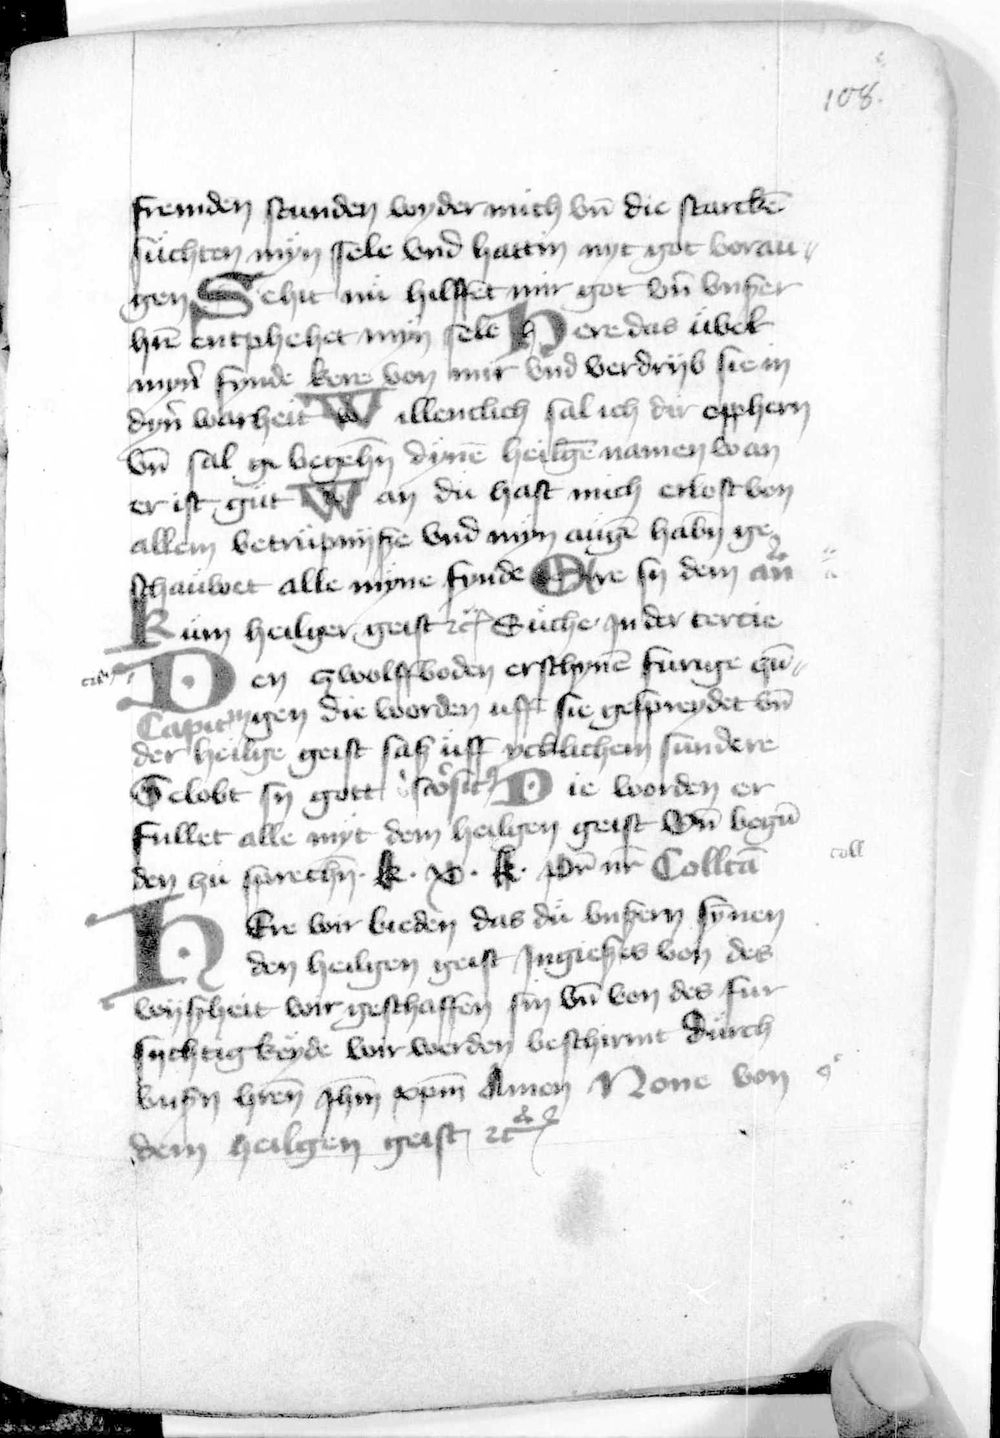 108.
fremden stunden wyder mich vn̄ die starckē
süchten mỹn sele vnd hattin nyt got vorau//
gen Sehit nü hilffet mir got vn̄ vnßer
hr̄e entphehet mỹn sele Here das übel
myn̄ fynde kere von mir vnd verdrÿb sie in
dyn̄ warheit Willenclich sal ich dir opphern
vn̄ sal begehn̄ dynē heilgē namen wan
er ist güt Wan dü hast mich erlost von
allem betrüpnÿße vnd mỹn augē habn̄ ge
schauwet alle mỹne fynde Ere sy dem an̄
Kum heilger geist ꝛc Süche In der tercie
Den zwolffboden erschynē furige zū//
Capitm̄ gen die worden uff sie gespreydet vn̄
der heilige geist saß üff ycklichem sundere
Gelobt sy gott Die worden er
fullet alle mÿt dem heilgen geist Vn̄ begū
den zü sprechn̄. k. x̄. k. Pr̄ nr̄ Collcā
coll
HEre wir bieden das dü vnßern synnen
den heilgen geist Ingießes von des
wÿßheit wir geschaffen sin vn̄ von des fur
sychtigkeyde wir werden beschirmt Durch
vnßn̄ hren̄ Jhm̄ xpm̄ Amen None von
dem heilgen geist ꝛc